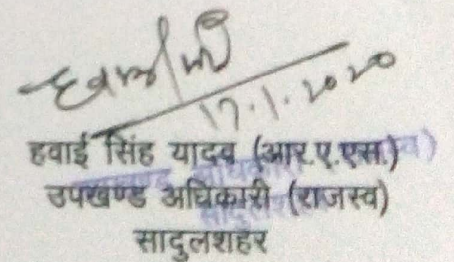 17.1.2020
हवाई सिंह यादव (आर.ए.एस.)
उपखण्ड अधिकारी (राजस्व)
सादुलशहर